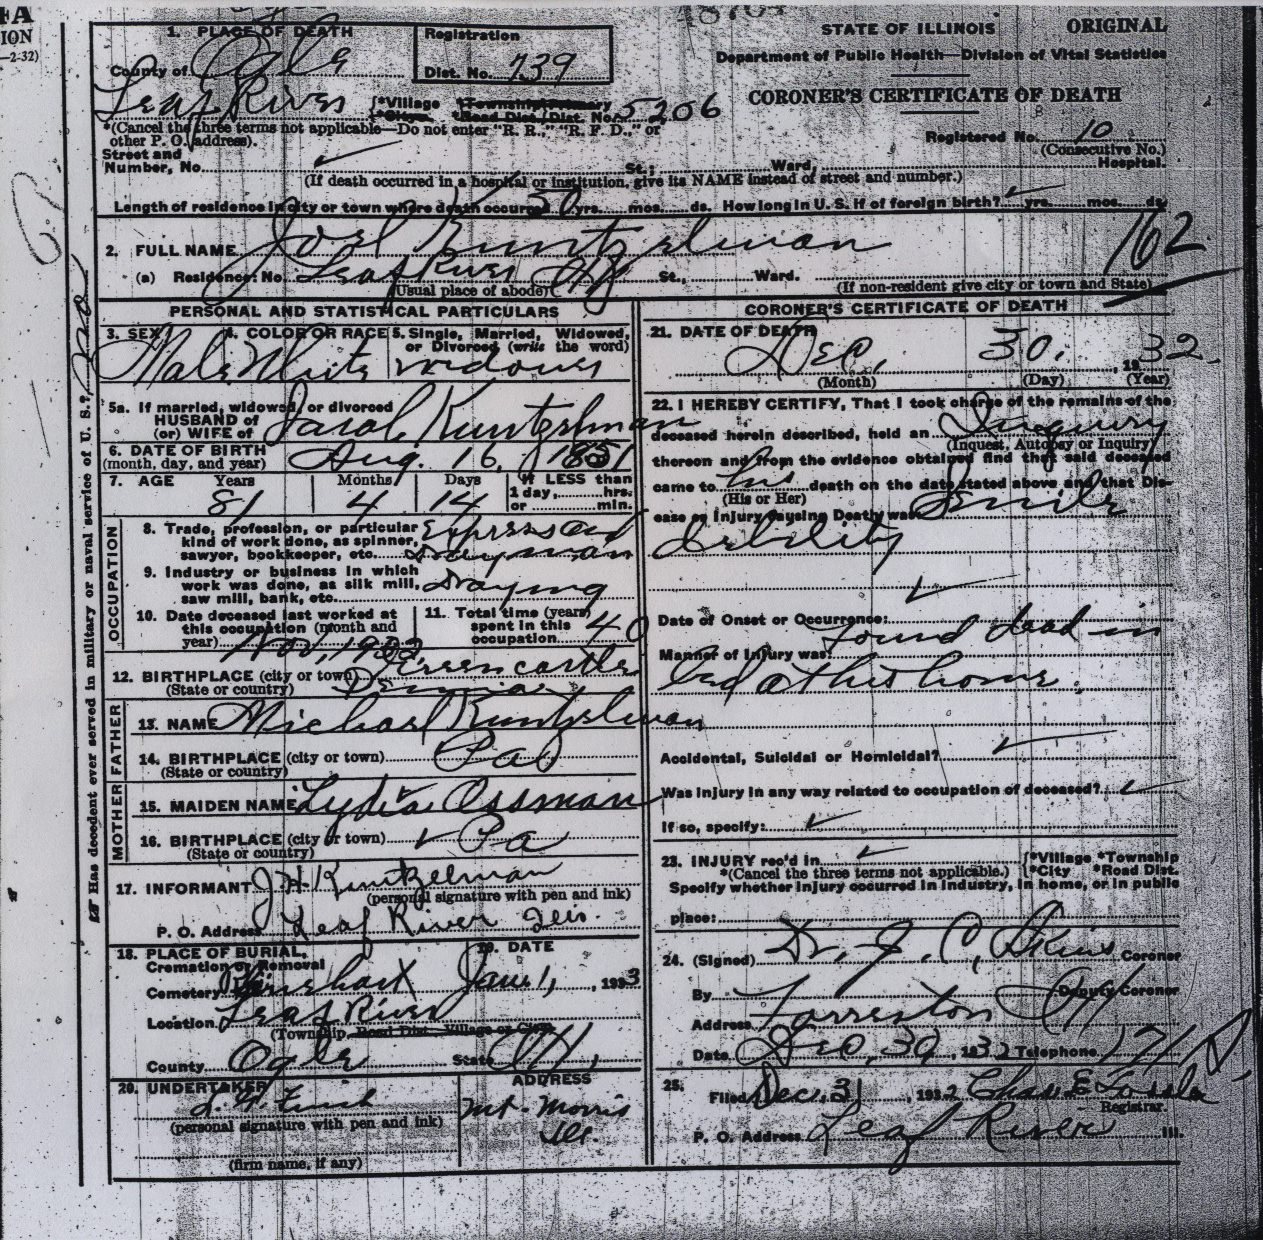 4A
ION
—2-32)
48764
STATE OF ILLINOIS ORIGINAL
Department of Public Health—Division of Vital Statistics
CORONER'S CERTIFICATE OF DEATH
Registered No. 10
(Consecutive No.)
1. PLACE OF DEATH
County of Ogle
Registration
Dist. No. 739
Leaf River {*Village *Township Primary
*City *Road Dist. Dist. No. 5206
*(Cancel the three terms not applicable—Do not enter "R. R.," "R. F. D.," or
other P. O. address).
Street and
Number, No. ✓ St.; Ward, Hospital.
(If death occurred in a hospital or institution, give its NAME instead of street and number.)
Length of residence in city or town where death occurred 50 yrs. mos. ds. How long in U. S. if of foreign birth? ✓ yrs. mos. ds.
2. FULL NAME Joel Kuntzelman
162
(a) Residence: No. Leaf River Ill St., Ward.
(Usual place of abode) (If non-resident give city or town and State)
*Has decedent ever served in military or naval service of U. S.? no
PERSONAL AND STATISTICAL PARTICULARS
3. SEX 4. COLOR OR RACE 5. Single, Married, Widowed,
or Divorced (write the word)
Male White widower
5a. If married, widowed, or divorced
HUSBAND of
(or) WIFE of Sarah Kuntzelman
6. DATE OF BIRTH
(month, day, and year) Aug. 16, 1851
7. AGE Years Months Days If LESS than
1 day, hrs.
or min.
81 4 14
OCCUPATION
8. Trade, profession, or particular
kind of work done, as spinner,
sawyer, bookkeeper, etc. Express and
Drayman
9. Industry or business in which
work was done, as silk mill,
saw mill, bank, etc. Draying
10. Date deceased last worked at
this occupation (month and
year) Nov, 1902
11. Total time (years)
spent in this
occupation 40
12. BIRTHPLACE (city or town) Greencastle
(State or country) Penna
FATHER
13. NAME Michael Kuntzelman
14. BIRTHPLACE (city or town) Pa
(State or country)
MOTHER
15. MAIDEN NAME Lydia Ossman
16. BIRTHPLACE (city or town) ✓ Pa
(State or country)
17. INFORMANT J. H. Kuntzelman
(personal signature with pen and ink)
P. O. Address Leaf River Ill.
18. PLACE OF BURIAL, 19. DATE
Cremation or Removal
Cemetery Jan 1, 1933
Location Leaf River
(Township, Road Dist., Village or City)
County Ogle State Ill,
20. UNDERTAKER ADDRESS
Mt. Morris
Ill.
(personal signature with pen and ink)
(firm name, if any)
CORONER'S CERTIFICATE OF DEATH
21. DATE OF DEATH
Dec, 30, 1932.
(Month) (Day) (Year)
22. I HEREBY CERTIFY, That I took charge of the remains of the
deceased herein described, held an Inquiry
(Inquest, Autopsy or Inquiry)
thereon and from the evidence obtained find that said deceased
came to his death on the date stated above and that Dis-
(His or Her)
ease or Injury causing Death was: Senile
debility
✓
Date of Onset or Occurrence:
Manner of Injury was: Found dead in
bed at his home.
Accidental, Suicidal or Homicidal? ✓
Was injury in any way related to occupation of deceased? ✓
If so, specify: ✓
23. INJURY rec'd in ✓ {*Village *Township
*(Cancel the three terms not applicable.) {*City *Road Dist.
Specify whether injury occurred in industry, in home, or in public
place:
24. (Signed) Dr. J. C. Akins Coroner
By Deputy Coroner
Address Forreston Ill
Date Dec, 30, 1932 Telephone 171
25.
Filed Dec. 31, 1932 Chas E
Registrar.
P. O. Address Leaf River Ill.